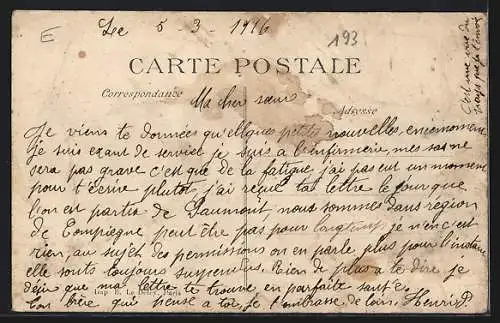 E
Le 5-3-1916
193
CARTE POSTALE
Correspondance
Adresse
Ma cher sœur
Je viens te données quellques petites nouvelles, en ce moment
je suis exant de service je suis a l'enfirmerie, mes sa ne
sera pas grave c'est que de la fatigue j'ai pas eut un moment
pour t'ecrire plutot, j'ai reçue ta lettre le jour que
l'on est partis de Daumont, nous sommes dans région
de Compiegne peut être pas pour longtemps je n'en c'est
rien, au sujet des permissions on en parle plus pour l'instant
elle sonts toujours suspendus. Rien de plus a te dire je
désir que ma lettre te trouve en parfaite santé.
Ton frère qui pense a toi, je t'embrasse de loin. Henri P.
Imp. E. Le Deley, Paris
C'est une vue du
pays